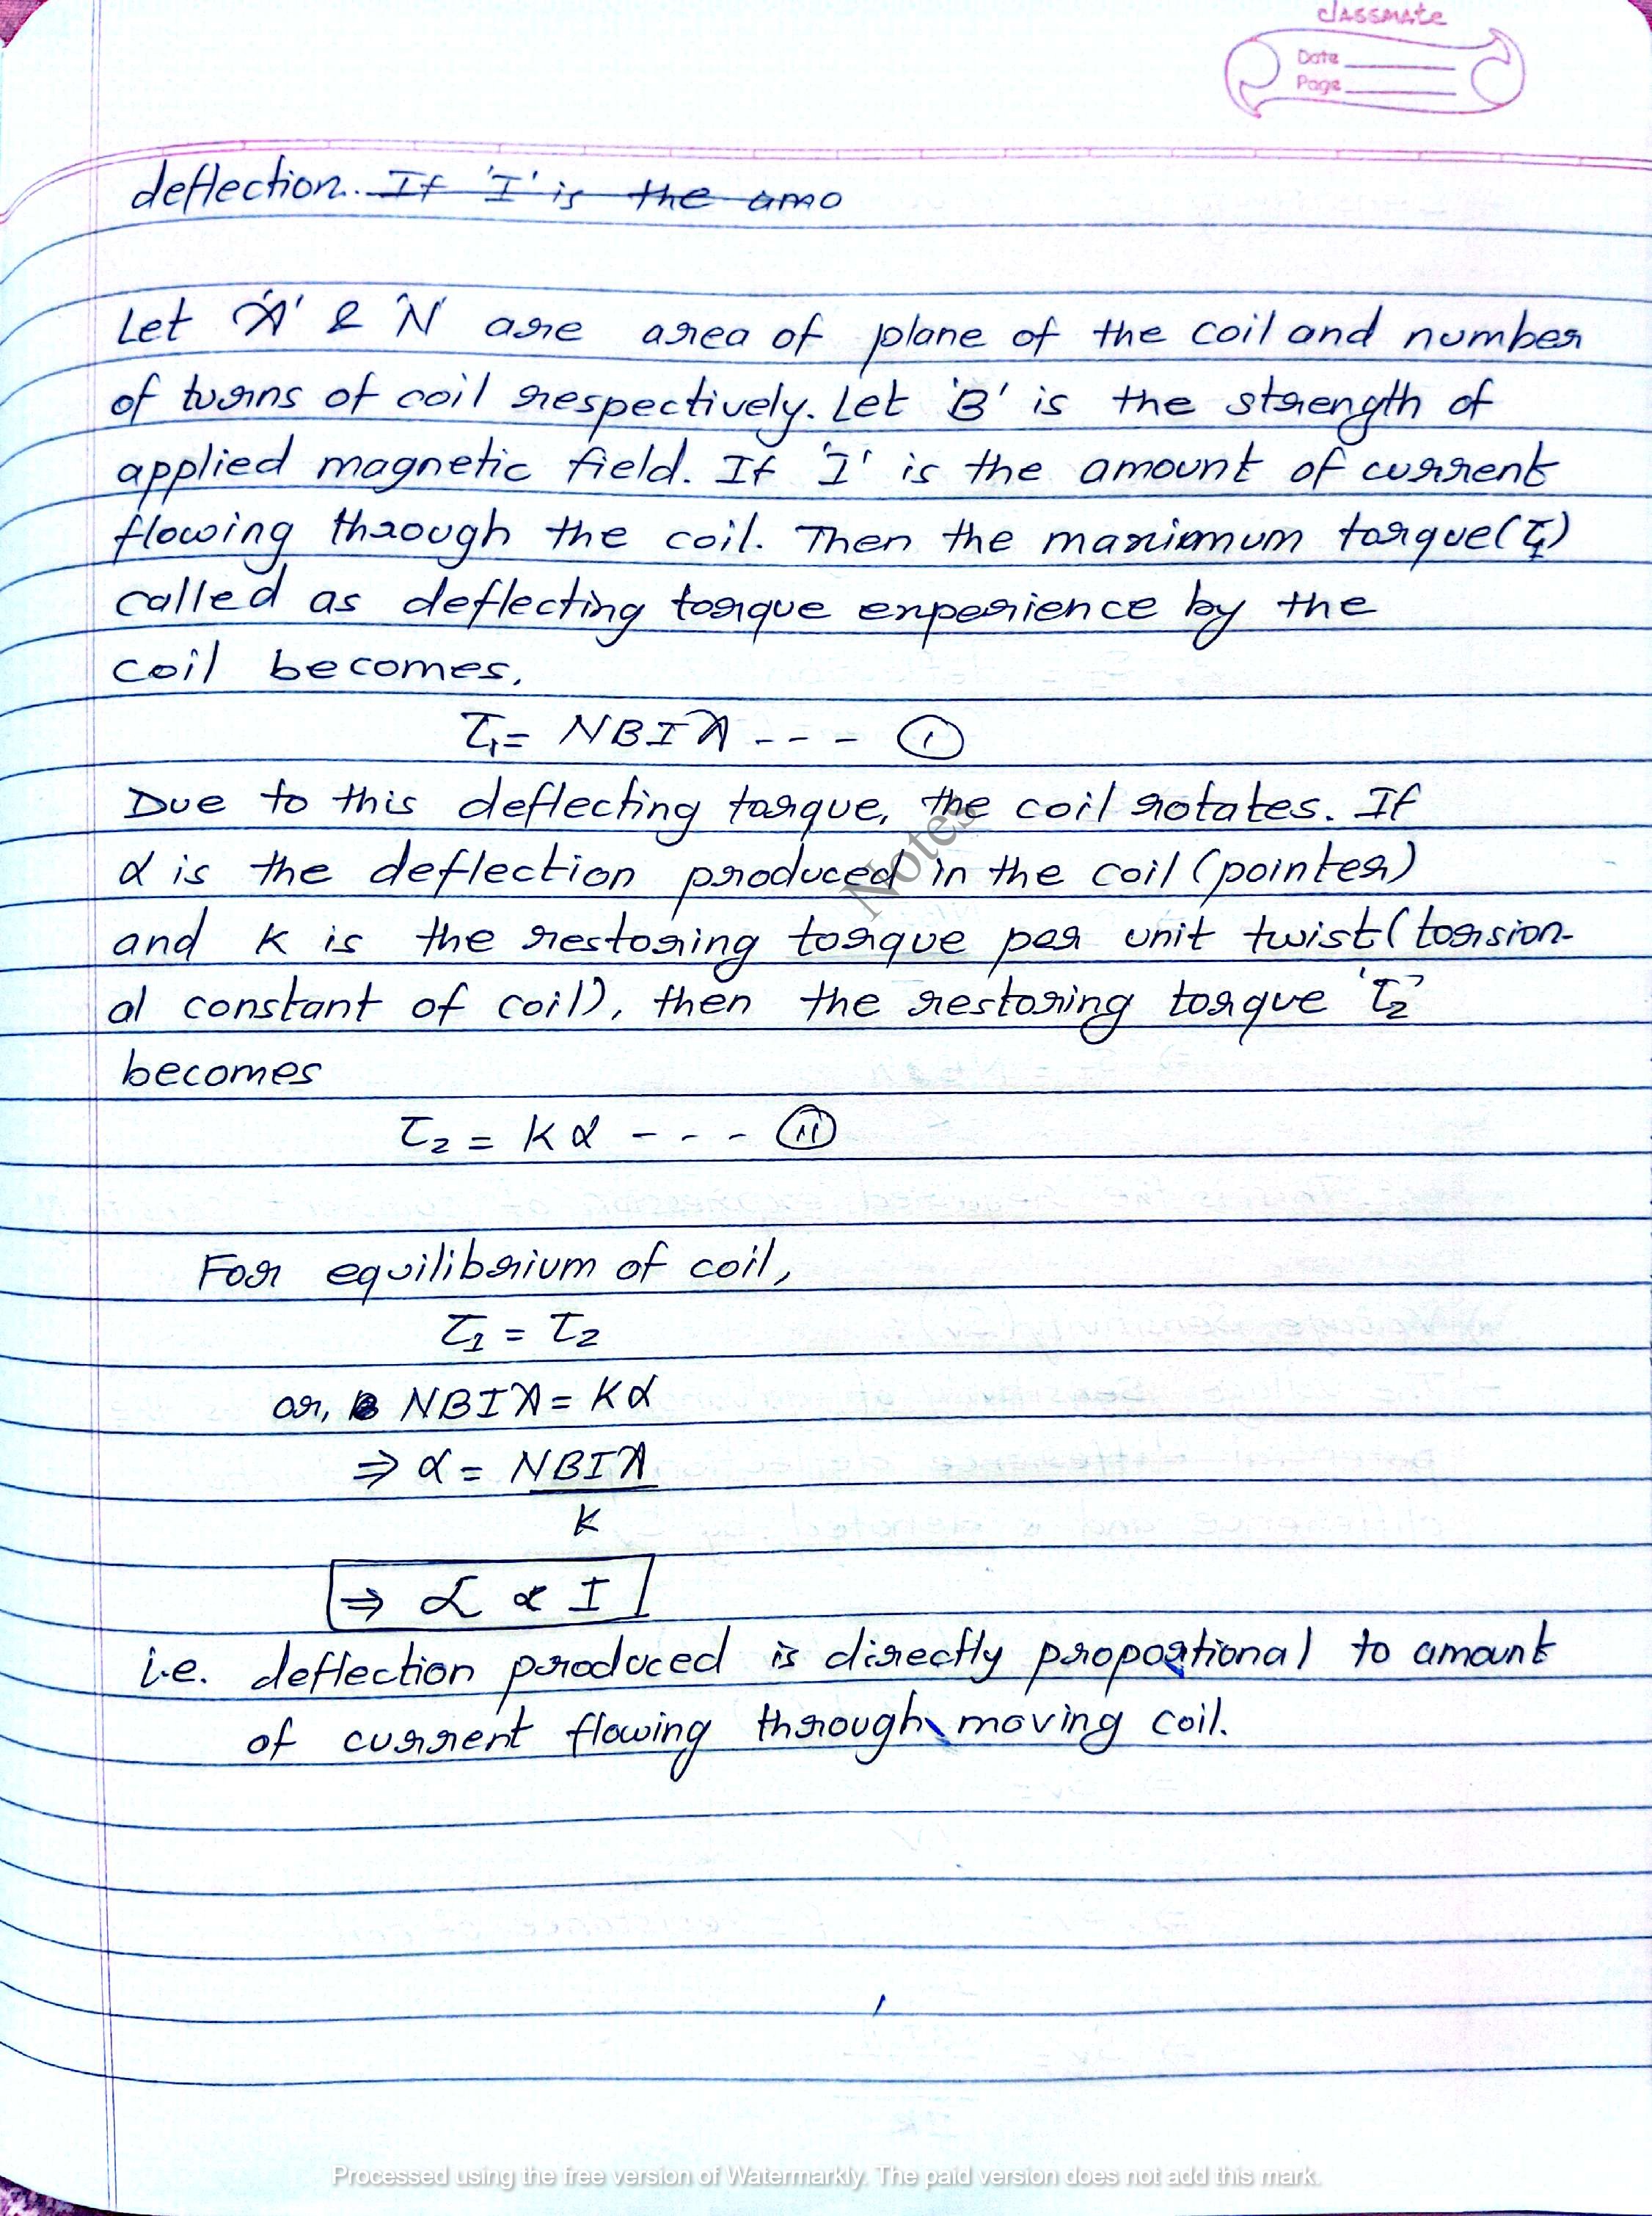 classmate
Date
Page
deflection. If 'I' is the amo
Let 'A' & 'N' are area of plane of the coil and number
of turns of coil respectively. Let 'B' is the strength of
applied magnetic field. If 'I' is the amount of current
flowing through the coil. Then the maximum torque (τ₁)
called as deflecting torque experience by the
coil becomes,
τ₁ = NBIA --- (i)
Due to this deflecting torque, the coil rotates. If
α is the deflection produced in the coil (pointer)
and K is the restoring torque per unit twist (torsion-
al constant of coil), then the restoring torque 'τ₂'
becomes
τ₂ = Kα --- (ii)
For equilibrium of coil,
τ₁ = τ₂
or, NBIA = Kα
⇒ α = NBIA
K
⇒ α ∝ I
i.e. deflection produced is directly proportional to amount
of current flowing through moving coil.
Notes
Processed using the free version of Watermarkly. The paid version does not add this mark.